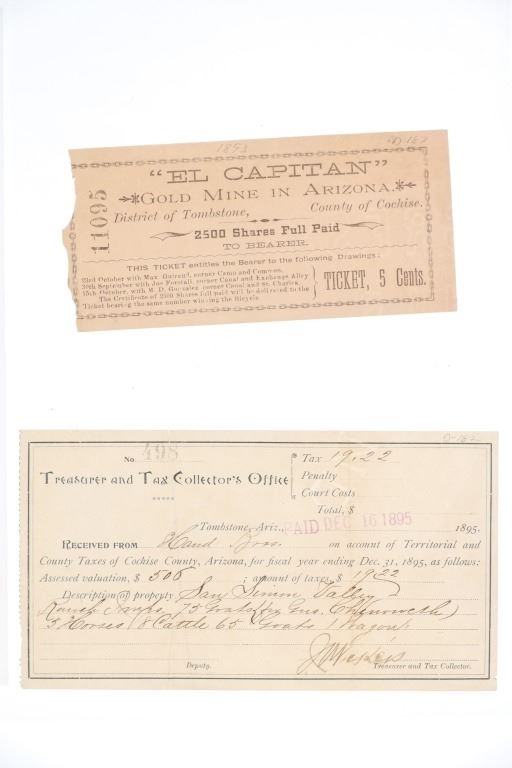 1893
11095
"EL CAPITAN"
GOLD MINE IN ARIZONA.
District of Tombstone, County of Cochise.
2500 Shares Full Paid
TO BEARER.
THIS TICKET entitles the Bearer to the following Drawings:
23rd October with Max. Guiraud, corner Camp and Common.
30th September with Jos Forstall, corner Canal and Exchange Alley
15th October, with M. D. Gonzalez corner Canal and St. Charles
The Certificate of 2500 Shares full paid will be delivered to the
Ticket bearing the same number winning the Bicycle.
TICKET, 5 Cents.
No 498
Tax 19.22
TREASURER AND TAX COLLECTOR'S OFFICE
Penalty
Court Costs
Total, $
Tombstone, Ariz., PAID DEC 16 1895 1895.
RECEIVED FROM Hand Bros. on account of Territorial and
County Taxes of Cochise County, Arizona, for fiscal year ending Dec. 31, 1895, as follows:
Assessed valuation, $ 506 ; amount of taxes, $ 19.22
Description of property San Simon Valley
Ranch 75 Goats
3 Horses 8 Cattle 65 Goats 1 Wagon
Deputy. Treasurer and Tax Collector.